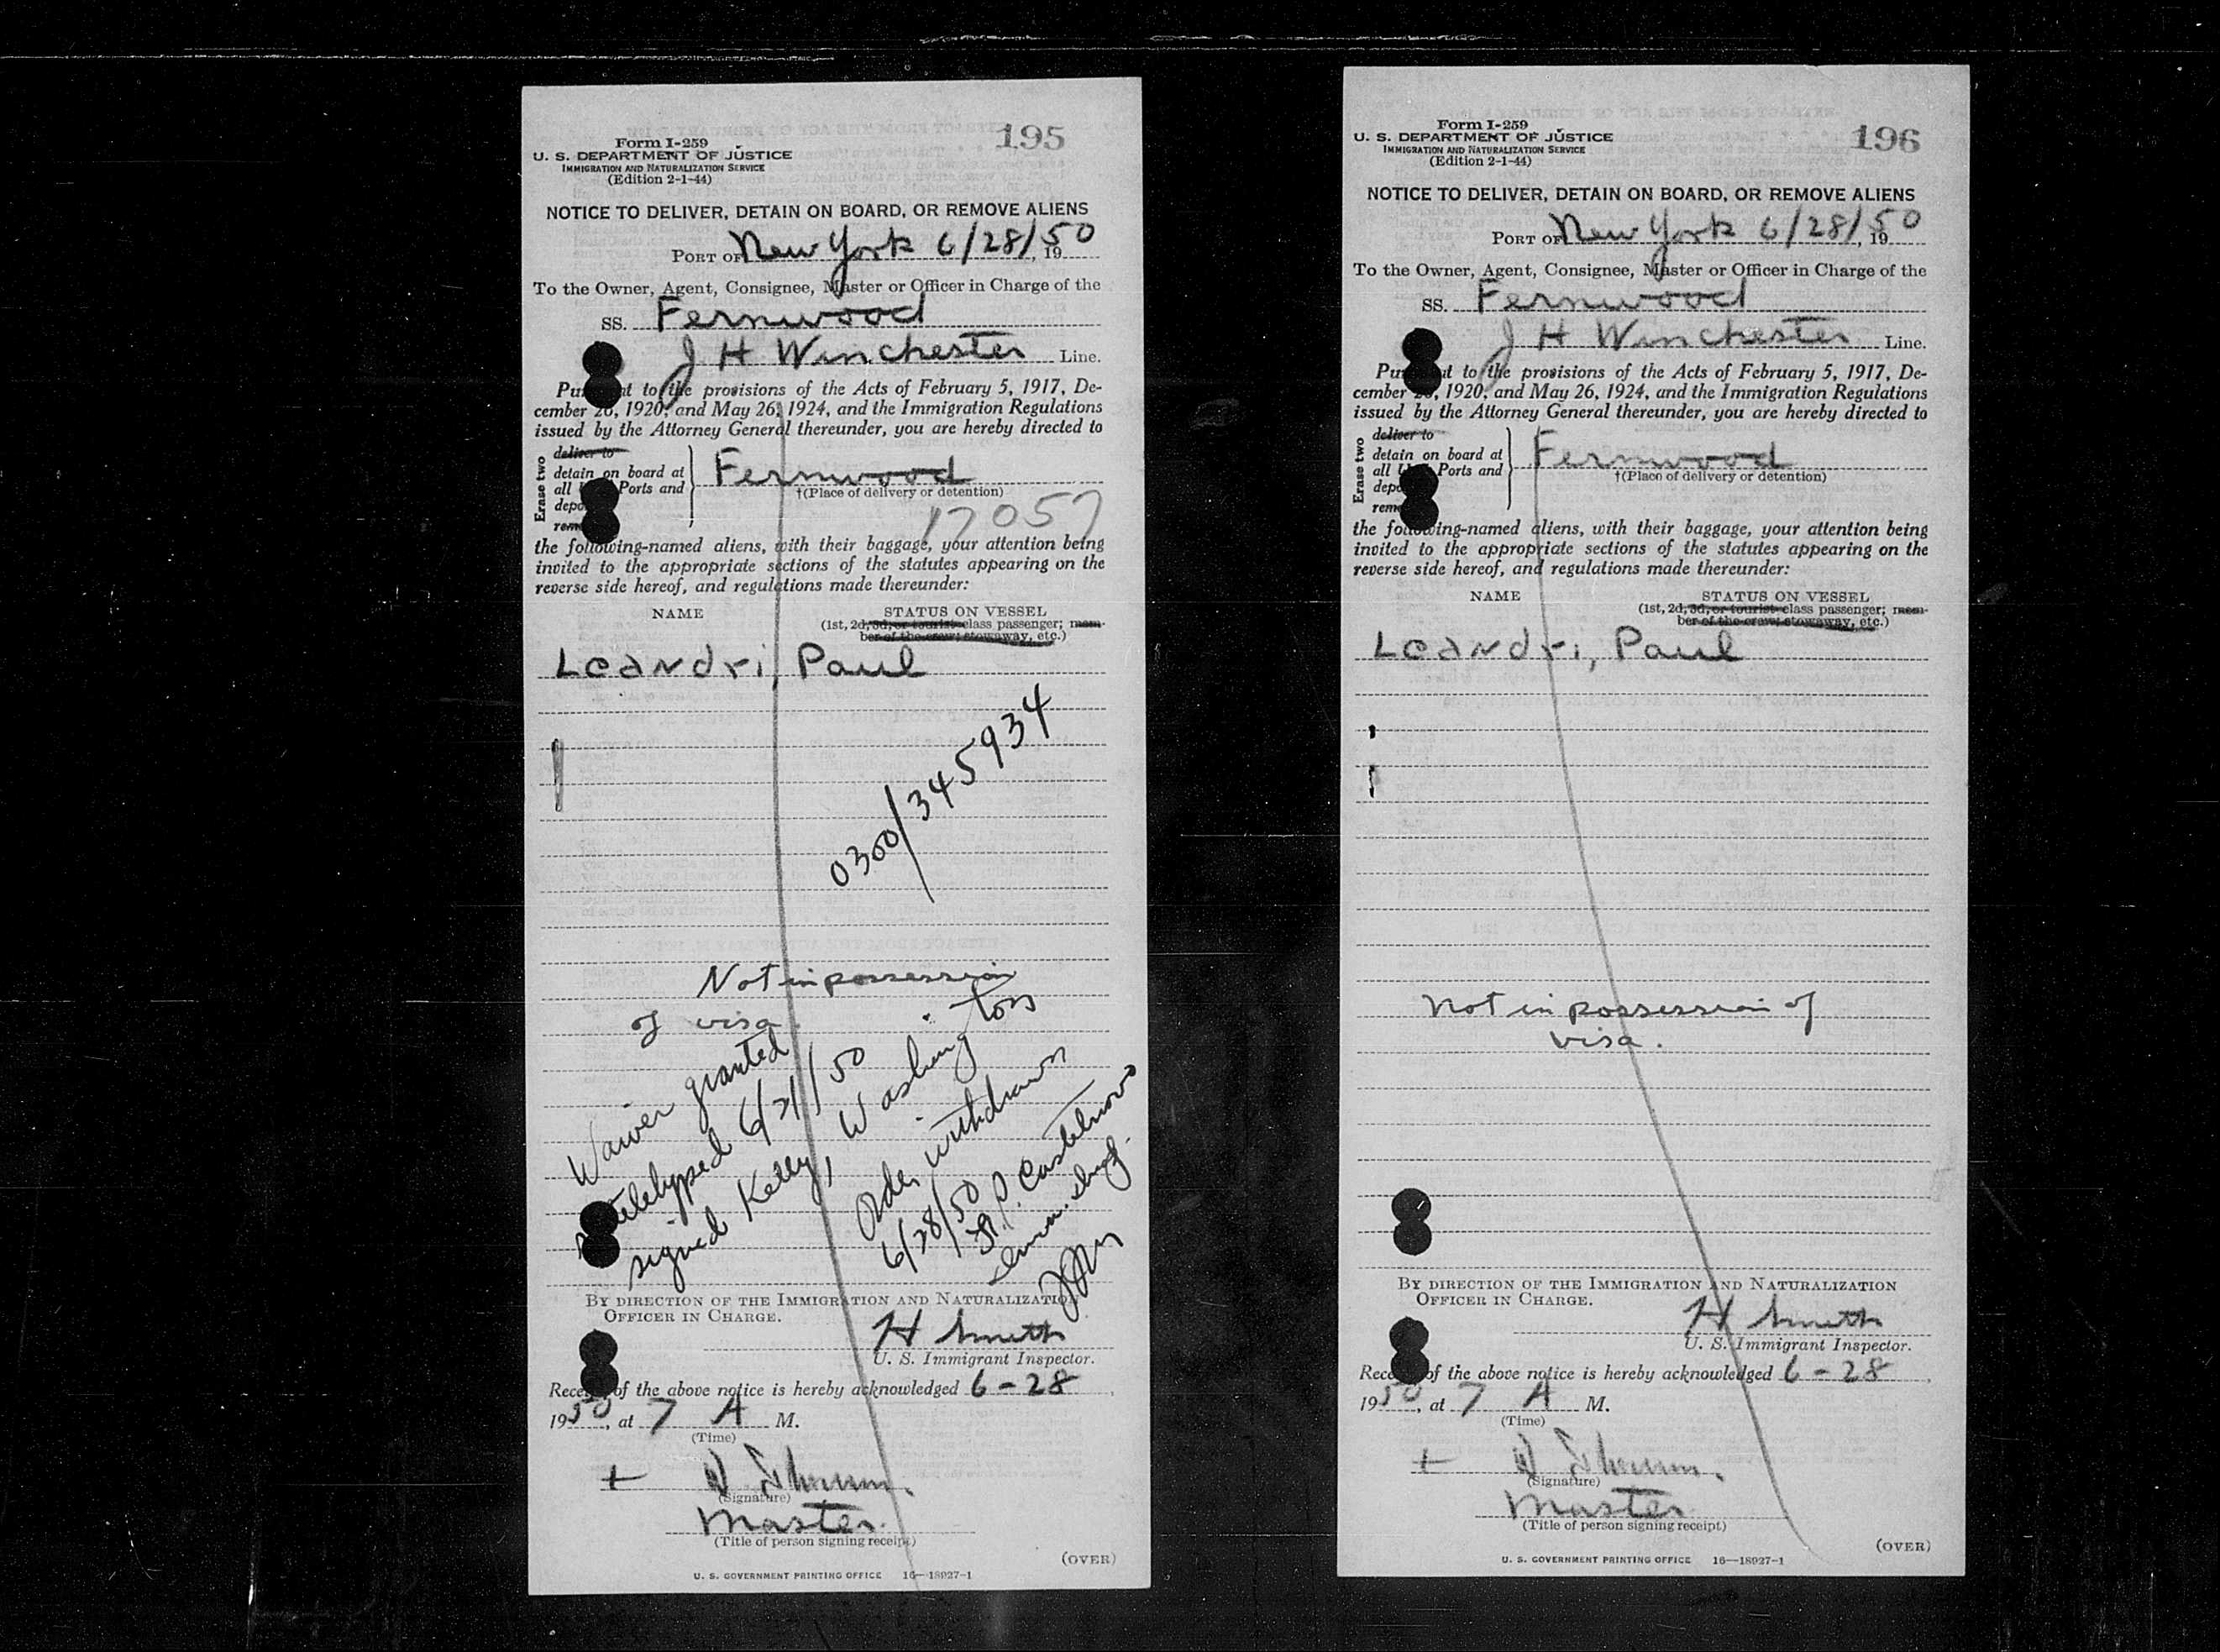 195
Form I-259
U. S. DEPARTMENT OF JUSTICE
IMMIGRATION AND NATURALIZATION SERVICE
(Edition 2-1-44)
NOTICE TO DELIVER, DETAIN ON BOARD, OR REMOVE ALIENS
PORT OF New York 6/28/, 1950
To the Owner, Agent, Consignee, Master or Officer in Charge of the
SS. Fernwood
J H Winchester Line.
to the provisions of the Acts of February 5, 1917, De-
cember 26, 1920, and May 26, 1924, and the Immigration Regulations
issued by the Attorney General thereunder, you are hereby directed to
Erase two
deliver to
detain on board at
all Ports and
Fernwood
†(Place of delivery or detention)
17057
the following-named aliens, with their baggage, your attention being
invited to the appropriate sections of the statutes appearing on the
reverse side hereof, and regulations made thereunder:
NAME STATUS ON VESSEL
(1st, 2d, 3d, or tourist class passenger; mem-
ber of the crew; stowaway, etc.)
Leandri, Paul
0300/345934
Not in possession
of visa.
Waiver granted
teletyped 6/21/50
signed Kelly, Washington
Order withdrawn
6/28/50
P. Castelnovo
Imm. Insp.
BY DIRECTION OF THE IMMIGRATION AND NATURALIZATION
OFFICER IN CHARGE.
H Smith
U. S. Immigrant Inspector.
Receipt of the above notice is hereby acknowledged 6-28,
1950, at 7 A M.
(Time)
+
(Signature)
Master
(Title of person signing receipt)
(OVER)
U. S. GOVERNMENT PRINTING OFFICE 16—18927-1
196
Form I-259
U. S. DEPARTMENT OF JUSTICE
IMMIGRATION AND NATURALIZATION SERVICE
(Edition 2-1-44)
NOTICE TO DELIVER, DETAIN ON BOARD, OR REMOVE ALIENS
PORT OF New York 6/28/, 1950
To the Owner, Agent, Consignee, Master or Officer in Charge of the
SS. Fernwood
J H Winchester Line.
to the provisions of the Acts of February 5, 1917, De-
cember 1920, and May 26, 1924, and the Immigration Regulations
issued by the Attorney General thereunder, you are hereby directed to
Erase two
deliver to
detain on board at
all Ports and
Fernwood
†(Place of delivery or detention)
the following-named aliens, with their baggage, your attention being
invited to the appropriate sections of the statutes appearing on the
reverse side hereof, and regulations made thereunder:
NAME STATUS ON VESSEL
(1st, 2d, 3d, or tourist class passenger; mem-
ber of the crew; stowaway, etc.)
Leandri, Paul
Not in possession of
visa.
BY DIRECTION OF THE IMMIGRATION AND NATURALIZATION
OFFICER IN CHARGE.
H Smith
U. S. Immigrant Inspector.
of the above notice is hereby acknowledged 6-28,
1950, at 7 A M.
(Time)
+
(Signature)
Master
(Title of person signing receipt)
(OVER)
U. S. GOVERNMENT PRINTING OFFICE 16—18927-1